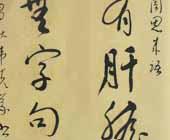 周恩来语
有肝膽
無字句